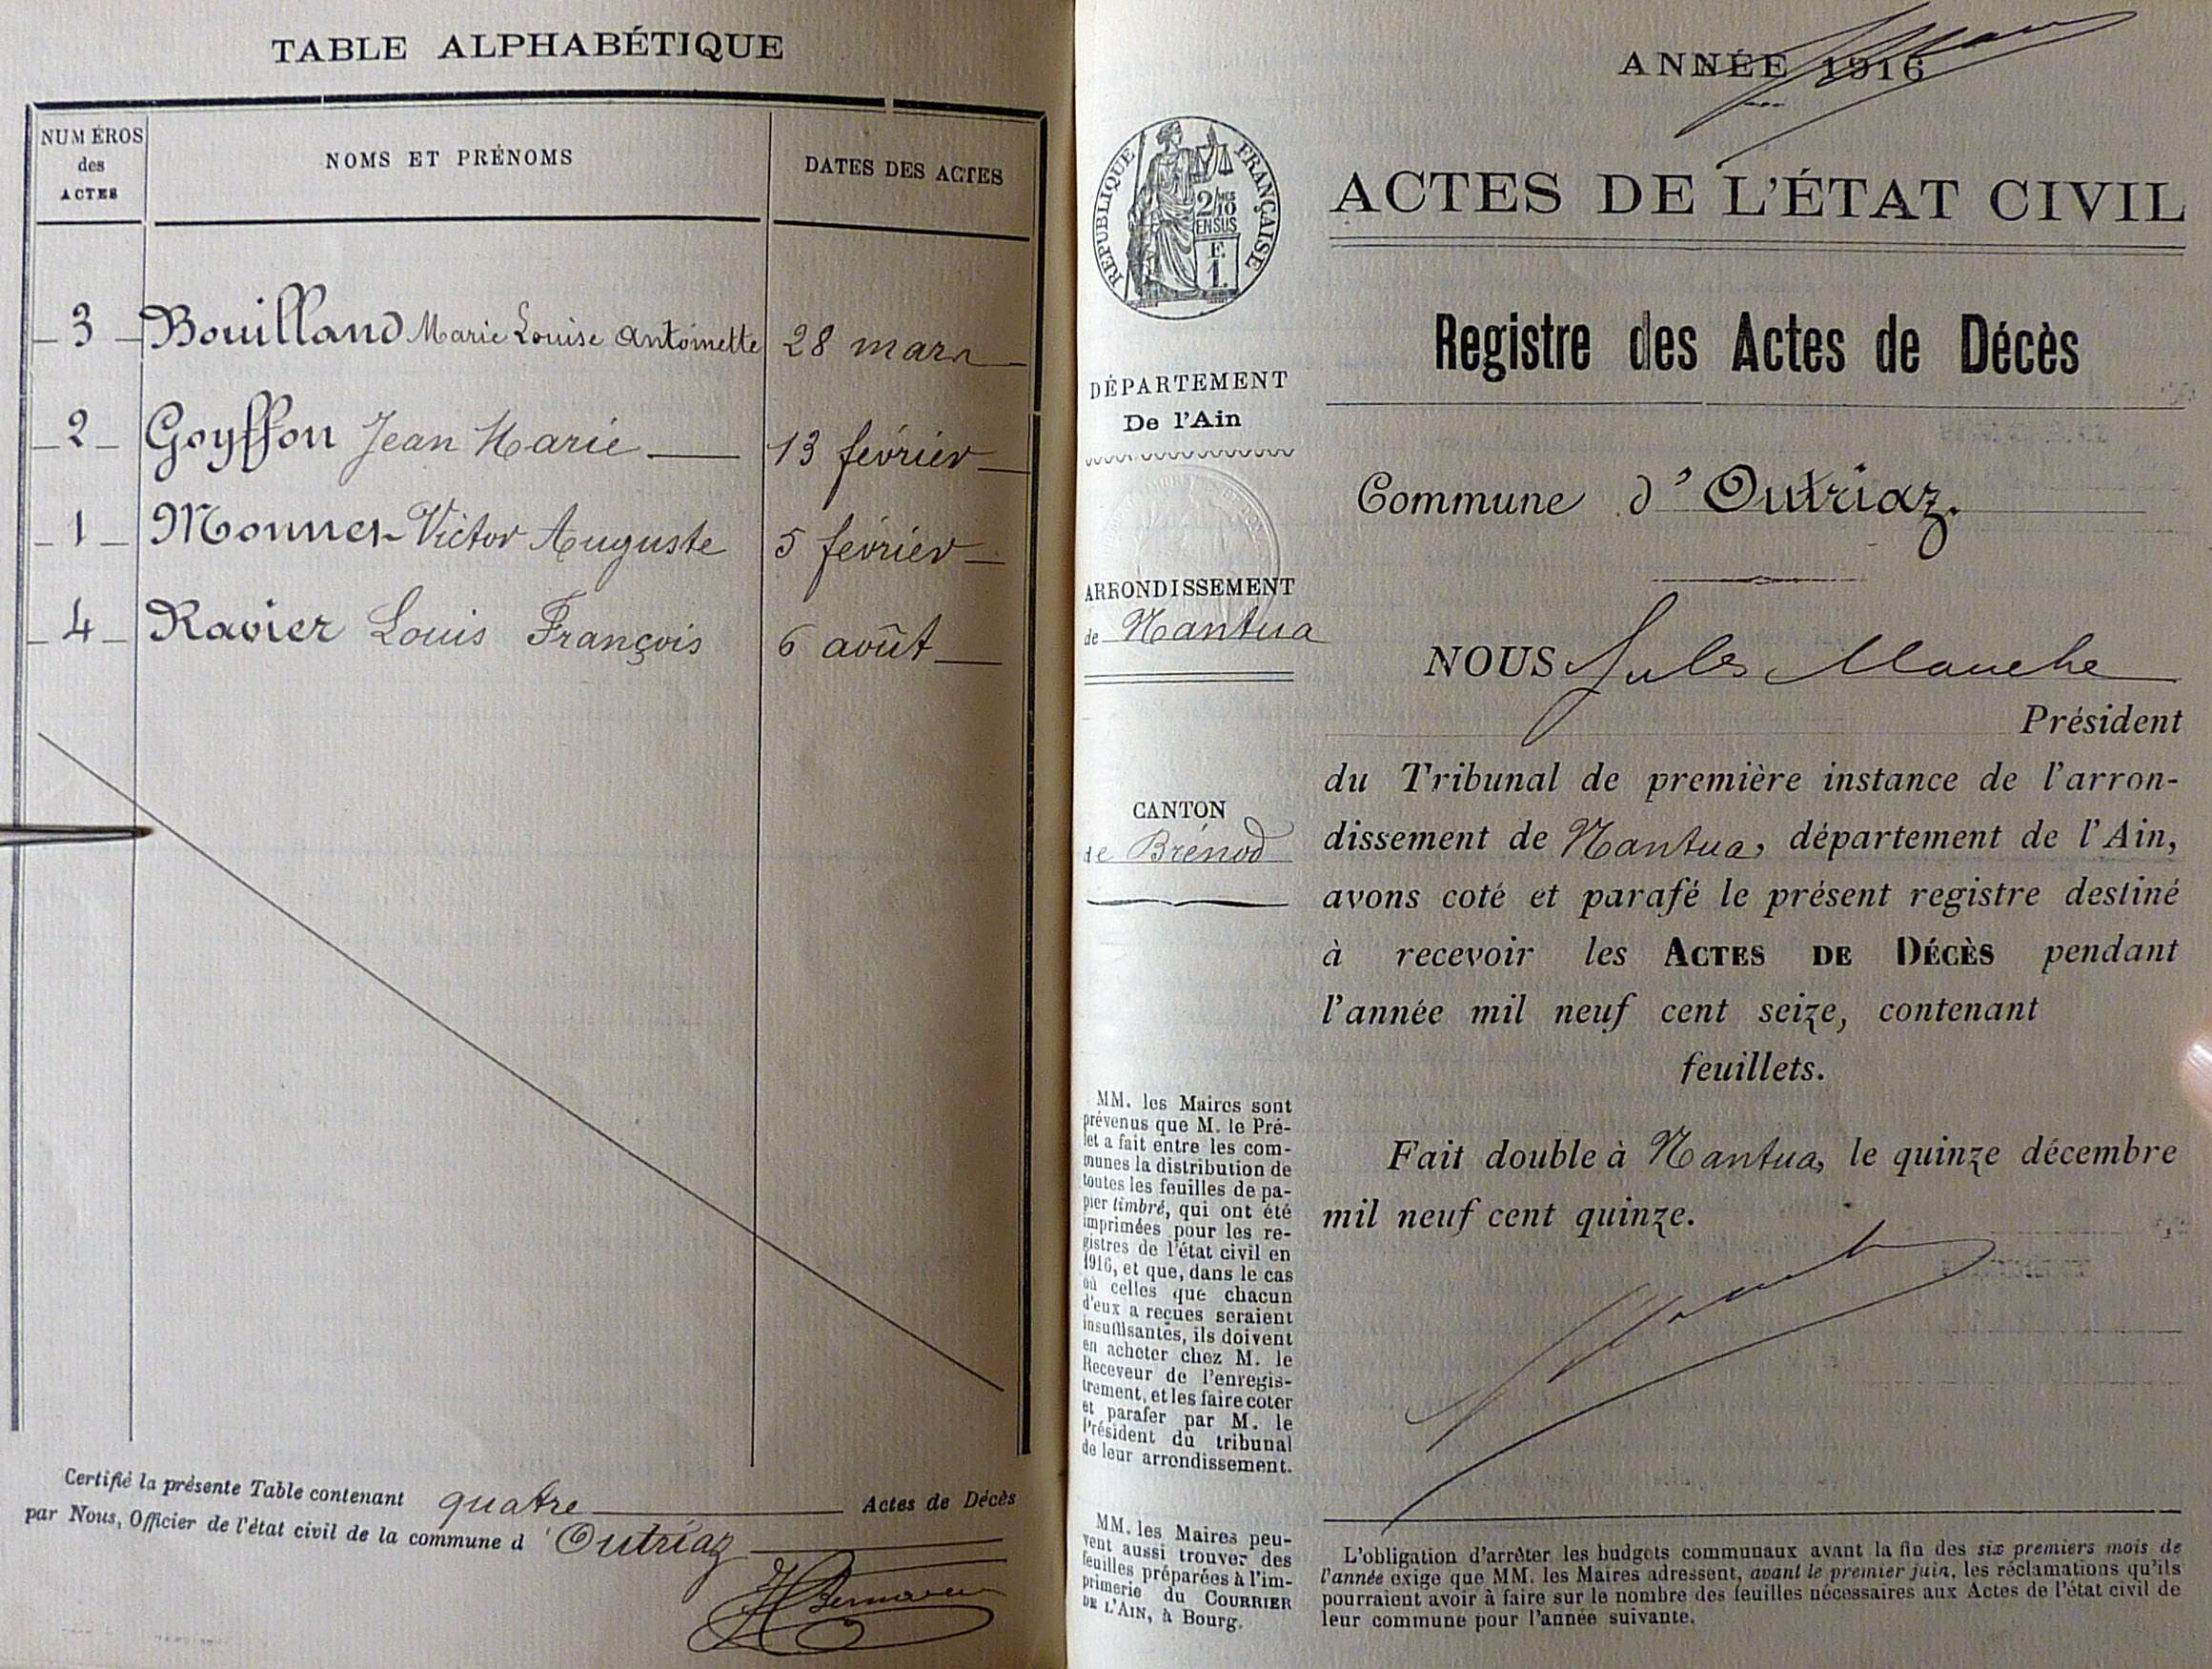 TABLE ALPHABÉTIQUE
NUMÉROS
des
ACTES
NOMS ET PRÉNOMS
DATES DES ACTES
3 Bouilland Marie Louise Antoinette 28 mars
2 Goyffon Jean Marie 13 février
1 Monnet Victor Auguste 5 février
4 Ravier Louis François 6 août
Certifié la présente Table contenant quatre Actes de Décès
par Nous, Officier de l'état civil de la commune d'Outriaz
ANNÉE 1916
ACTES DE L'ÉTAT CIVIL
RÉPUBLIQUE FRANÇAISE
2/10
MES
EN SUS
F.
1.
Registre des Actes de Décès
DÉPARTEMENT
De l'Ain
Commune d'Outriaz.
ARRONDISSEMENT
de Nantua
NOUS Jules Mauche
Président
du Tribunal de première instance de l'arron-
dissement de Nantua, département de l'Ain,
avons coté et parafé le présent registre destiné
à recevoir les ACTES DE DÉCÈS pendant
l'année mil neuf cent seize, contenant
feuillets.
CANTON
de Brénod
Fait double à Nantua, le quinze décembre
mil neuf cent quinze.
MM. les Maires sont
prévenus que M. le Pré-
fet a fait entre les com-
munes la distribution de
toutes les feuilles de pa-
pier timbré, qui ont été
imprimées pour les re-
gistres de l'état civil en
1916, et que, dans le cas
où celles que chacun
d'eux a reçues seraient
insuffisantes, ils doivent
en acheter chez M. le
Receveur de l'enregis-
trement, et les faire coter
et parafer par M. le
Président du tribunal
de leur arrondissement.
MM. les Maires peu-
vent aussi trouver des
feuilles préparées à l'im-
primerie du COURRIER
DE L'AIN, à Bourg.
L'obligation d'arrêter les budgets communaux avant la fin des six premiers mois de
l'année exige que MM. les Maires adressent, avant le premier juin, les réclamations qu'ils
pourraient avoir à faire sur le nombre des feuilles nécessaires aux Actes de l'état civil de
leur commune pour l'année suivante.